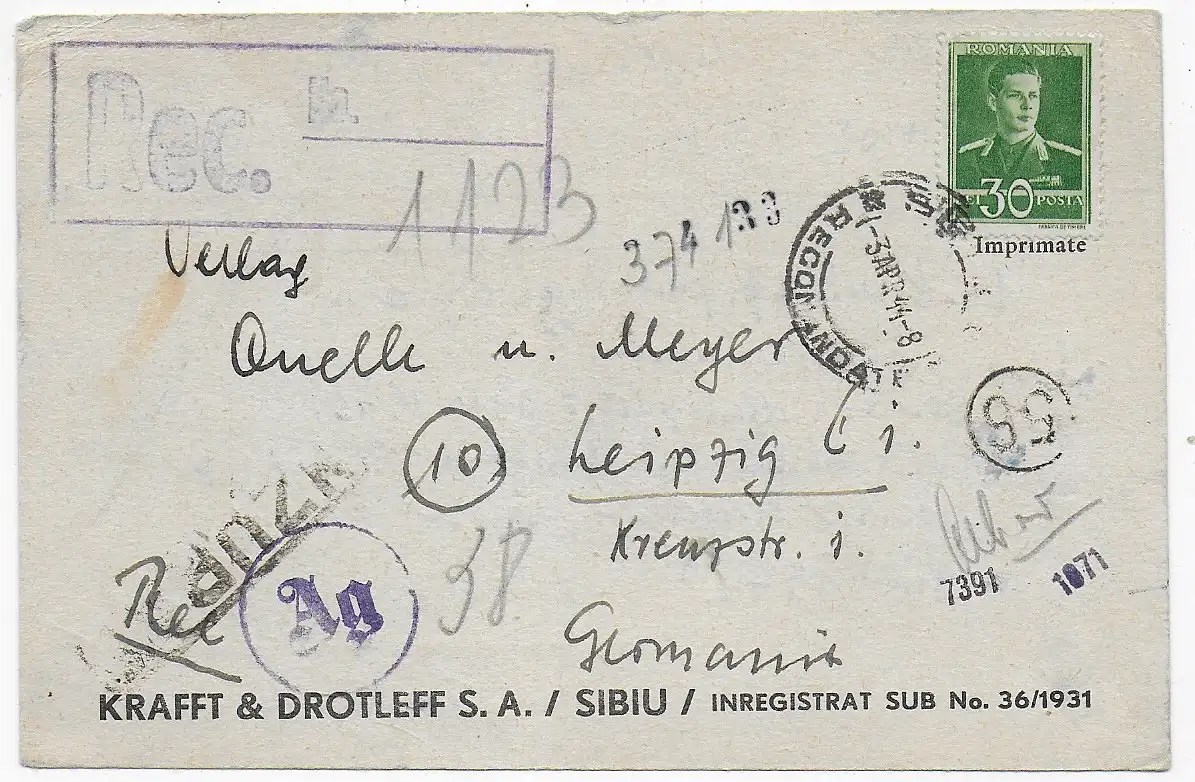 Rec. lb.
1123
ROMANIA
LEI 30 POSTA
Imprimate
374 133
RECOMANDATE
-3 APR 44-8
Verlag
Quelle u. Meyer
10 Leipzig C i.
Kreuzstr. i.
Germania
58
Rec
Ag
38
7391
1071
KRAFFT & DROTLEFF S. A. / SIBIU / INREGISTRAT SUB No. 36/1931